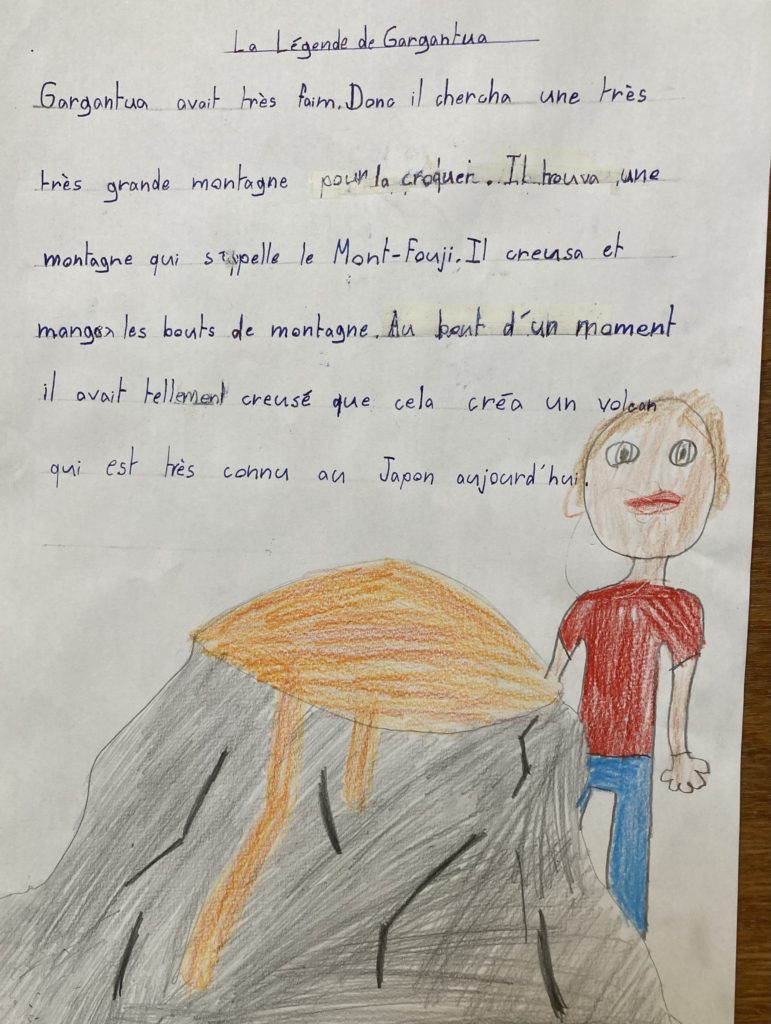 La Légende de Gargantua
Gargantua avait très faim. Donc il chercha une très
très grande montagne pour la croquer. Il trouva une
montagne qui s'appelle le Mont-Fouji. Il creusa et
mangea les bouts de montagne. Au bout d'un moment
il avait tellement creusé que cela créa un volcan
qui est très connu au Japon aujourd'hui.